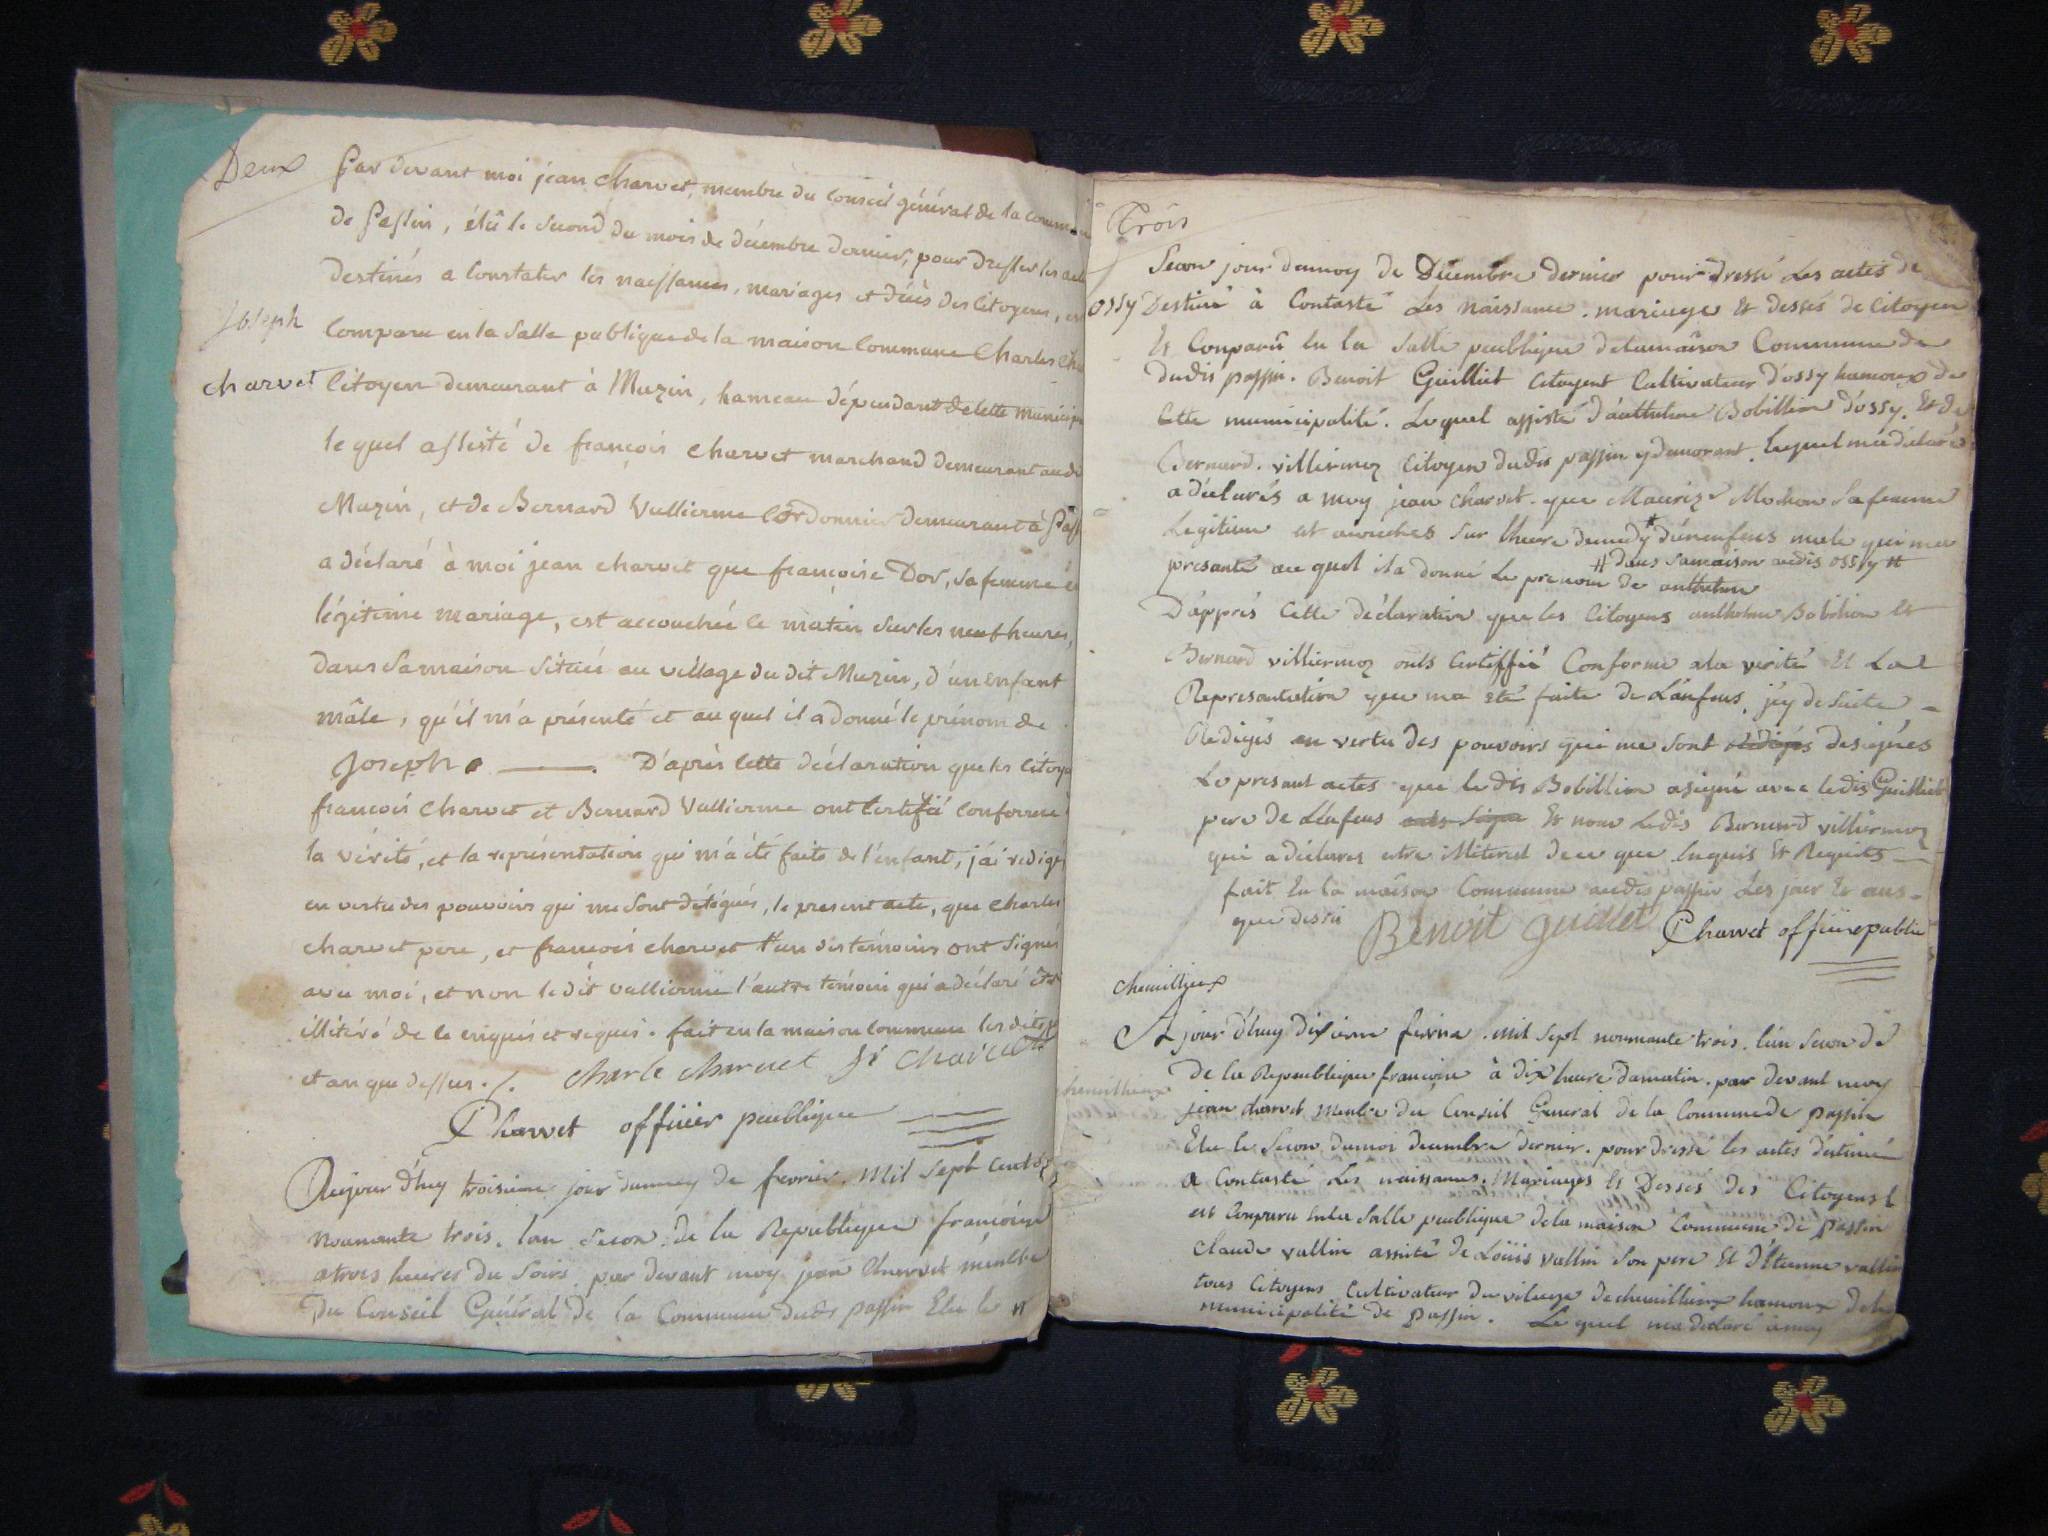 Deux
Par devant moi jean Charvet, membre du conseil général de la commune
de Passin, élû le second du mois de décembre dernier, pour dresser les actes
destinés a Constater les naissances, mariages et décès des Citoyens, est
Joseph
Comparu en la Salle publique de la maison Commune Charles
charvet
Citoyen demeurant à Muzin, hameau dépendant de cette
le quel assisté de françois charvet marchand demeurant au dit
Muzin, et de Bernard Vullierme Cordonnier demeurant à
a déclaré à moi jean charvet que françoise Dor, sa femme en
légitime mariage, est accouchée ce matin sur les neuf heures,
dans sa maison située au village du dit Muzin, d'un enfant
mâle, qu'il m'a présenté et au quel il a donné le prénom de
Joseph . D'après cette déclaration que les
françois charvet et Bernard Vullierme ont certifié conforme
la vérité, et la représentation qui m'a été faite de l'enfant, j'ai
en vertu des pouvoirs qui me sont délégués, le present acte, que Charles
charvet pere, et françois charvet l'un des témoins ont signés
avec moi, et non le dit Vullierme l'autre témoin qui a déclaré
illitéré de ce enquis et requis. fait en la maison commune les dits
et an que dessus. /. Charle Charvet
J Charvet officier publique
Aujour d'huy troisieme jour dumoy de fevrier. Mil sept cent
nounante trois. lan secon de la Republique francoise
a trois heures du soirs par devant moy jean Charvet membre
Du Conseil Général de la Commune dudis passin Elu le
Trois
Secon jour dumoy de Decembre dernier pour dressé Les actes de
ossy
Destiné à Contasté Les naissance. mariage Et dessés de Citoyen
Et Conparû en la Salle publique delamaison Commune de
dudis passin. Benoit Guilliet Citoyent Cultivateur d'ossy hamoux de
Cette municipalité. Lequel assisté d'anthelme Bobillion d'ossy. Et de
Bernard. villiermoz Citoyen dudis passin y demorant. lequel
a déclarés a moy jean charvet. que Mauriz Mochon Sa femme
Legitime et acouches sur lheure demedy d'unenfens male qui
# dans samaison audis ossy #
presanté au quel il a donné Le prenom de anthelme
D'apprés Cette déclaration que les Citoyens anthelme Bobilion Et
Bernard villiermoz onts Certiffié Conforme ala verité Et La
Represantation que ma été faite de Lenfens, jey de suite
Redigés en vertu des pouvoirs qui me sont designées
Le presant actes que le dis Bobillion asigné avec ledis Guilliet
pere de Lenfens Et non Ledis Bernard villiermoz
qui adéclares etre illiteret dece que Enquis Et Requits
fait En la maison Commune audis passin Les jour Et ans
que dessu Benoit guillet J Charvet officié public
cheuillieux
A jour d'huy dixieme fevrie. Mil Sept nounante trois. lan Secon dé
De la Republique francoise à dix heure damatin. par devant moy
jean charvet menbre du Conseil General de la Commune de passin
Elu le Secon dumoi decembre dernier. pour dressé les actes déstiné
a Contasté Les naissances. Mariages Et Dessés des Citoyens
est Conparu enla Salle publique dela maison Commune de passin
Claude vallin assisté de Loüis vallin Son pere Et d'Etienne vallin
tous Citoyens Cultivateur du vilage decheuillieux hamoux dela
municipalité de passin. Le quel ma declaré amoy